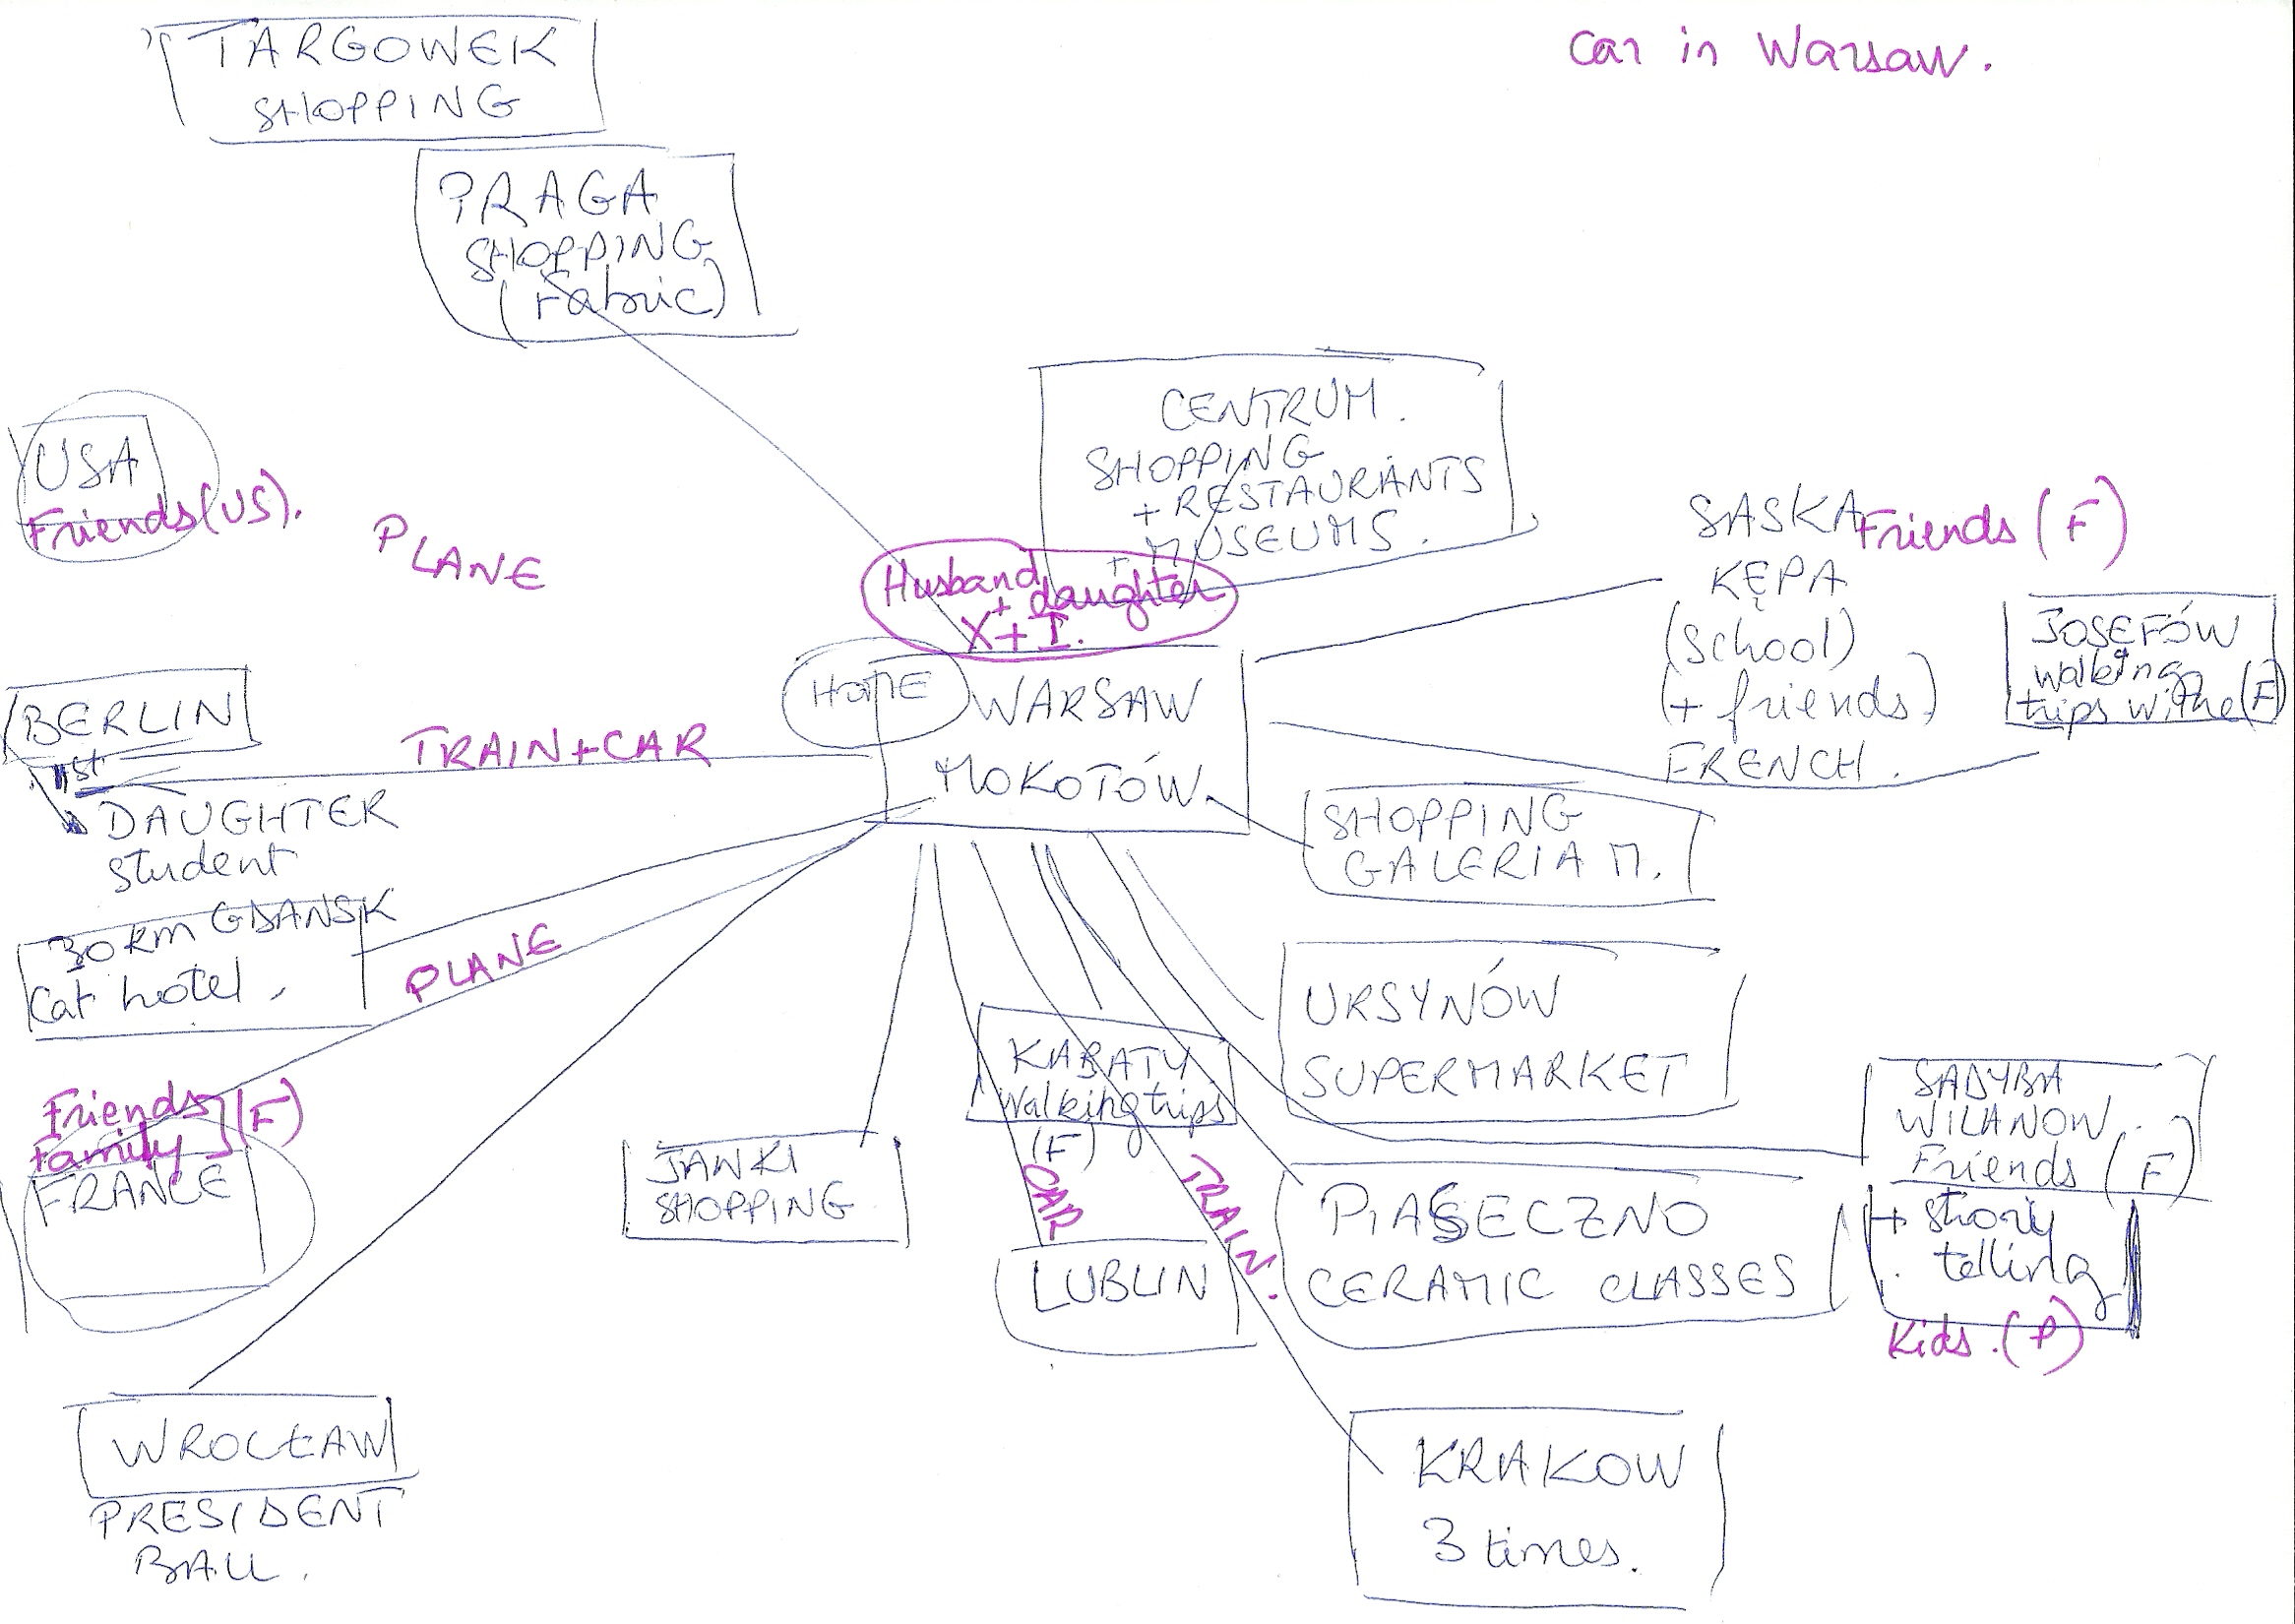 TARGOWEK
SHOPPING
PRAGA
SHOPPING
(Fabric)
Car in Warsaw.
USA
Friends (US).
PLANE
CENTRUM.
SHOPPING
+ RESTAURANTS
+ MUSEUMS.
Husband
+ daughter
X + I.
HOME
WARSAW
MOKOTÓW.
SASKA Friends (F)
KĘPA
(school)
(+ friends)
FRENCH.
JOSEFÓW
walking
trips with (F)
BERLIN
1st
DAUGHTER
student
TRAIN + CAR
SHOPPING
GALERIA M.
30 km GDANSK
Cat hotel.
PLANE
URSYNÓW
SUPERMARKET
KABATY
Walking trips
(F)
SADYBA
WILANOW.
Friends (F)
+ story
telling
Kids. (P)
Friends
Family } (F)
FRANCE
JANKI
SHOPPING
CAR
LUBLIN
TRAIN.
PIASECZNO
CERAMIC CLASSES
WROCŁAW
PRESIDENT
BALL.
KRAKOW
3 times.